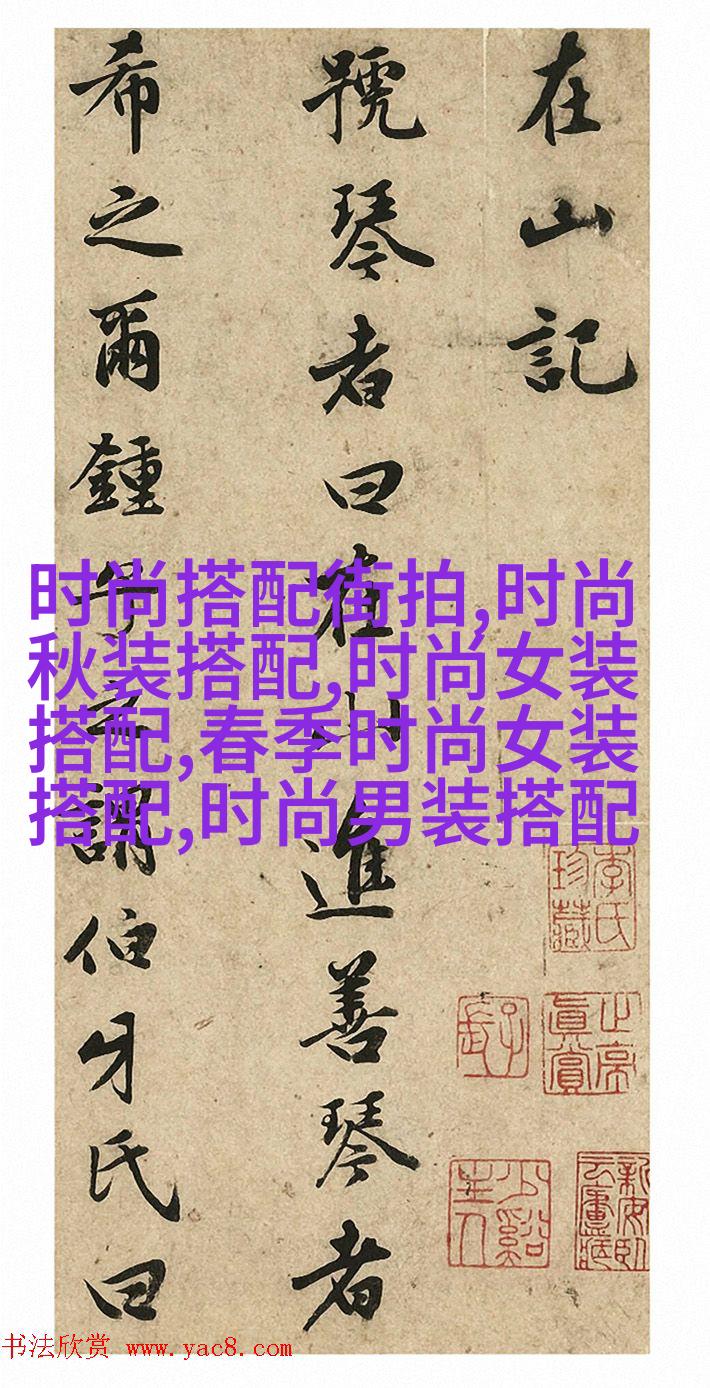 在山記
號琴者曰在山進善琴者
希之爾鍾謂伯牙氏曰
时尚搭配街拍,时尚
秋装搭配,时尚女装
搭配,春季时尚女装
搭配,时尚男装搭配
李氏珍藏
真賞
少谿主人
书法欣赏 www.yac8.com